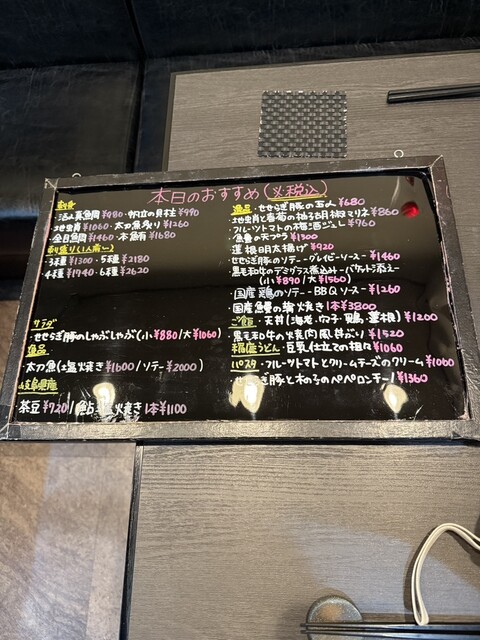 本日のおすすめ(※税込)
刺身
・活〆真鯛 ¥980・帆立の貝柱 ¥990
・地虫 ¥1060・太刀魚炙り ¥1260
・金目鯛 ¥1460・本鮪 ¥1680
刺盛り(1人前)
・3種 ¥1300・5種 ¥2180
・4種 ¥1740・6種 ¥2620
サラダ
・せせらぎ豚のしゃぶしゃぶ(小 ¥880/大 ¥1060)
逸品
・太刀魚(塩焼き ¥1600/ソテー ¥2000)
岐阜県産
茶豆 ¥720/鮎塩焼き 1本 ¥1100
逸品・せせらぎ豚の ¥680
・と春菊の柚子胡椒マリネ ¥860
・フルーツトマトの梅酒ジュレ ¥760
・の天プラ ¥1300
・蓮根の太揚げ ¥920
・せせらぎ豚のソテー-グレイビーソース- ¥1460
・黒毛和牛のデミグラス煮込み-バケット添え-
(小 ¥890/大 ¥1560)
・国産鶏のソテー-BBQソース- ¥1260
・国産鰻の焼き 1本 ¥3800
ご飯・天丼(海老、穴子、鶏、蓮根) ¥1200
・黒毛和牛の焼肉風丼ぶり ¥1520
稲庭うどん・豆乳仕立ての担々 ¥1060
パスタ・フルーツトマトとクリームチーズのクリーム ¥1060
・せせらぎ豚と木の子のペペロンチーノ ¥1360